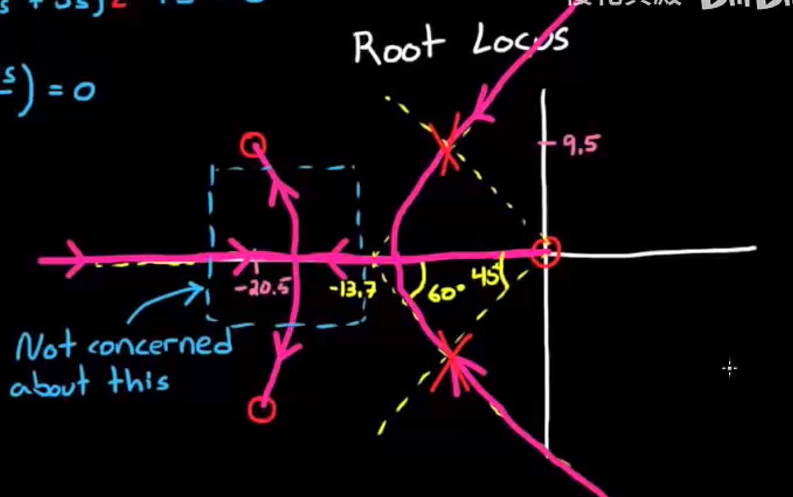 Root Locus
s) = 0
9.5
-20.5
-13.7
60°
45°
Not concerned
about this